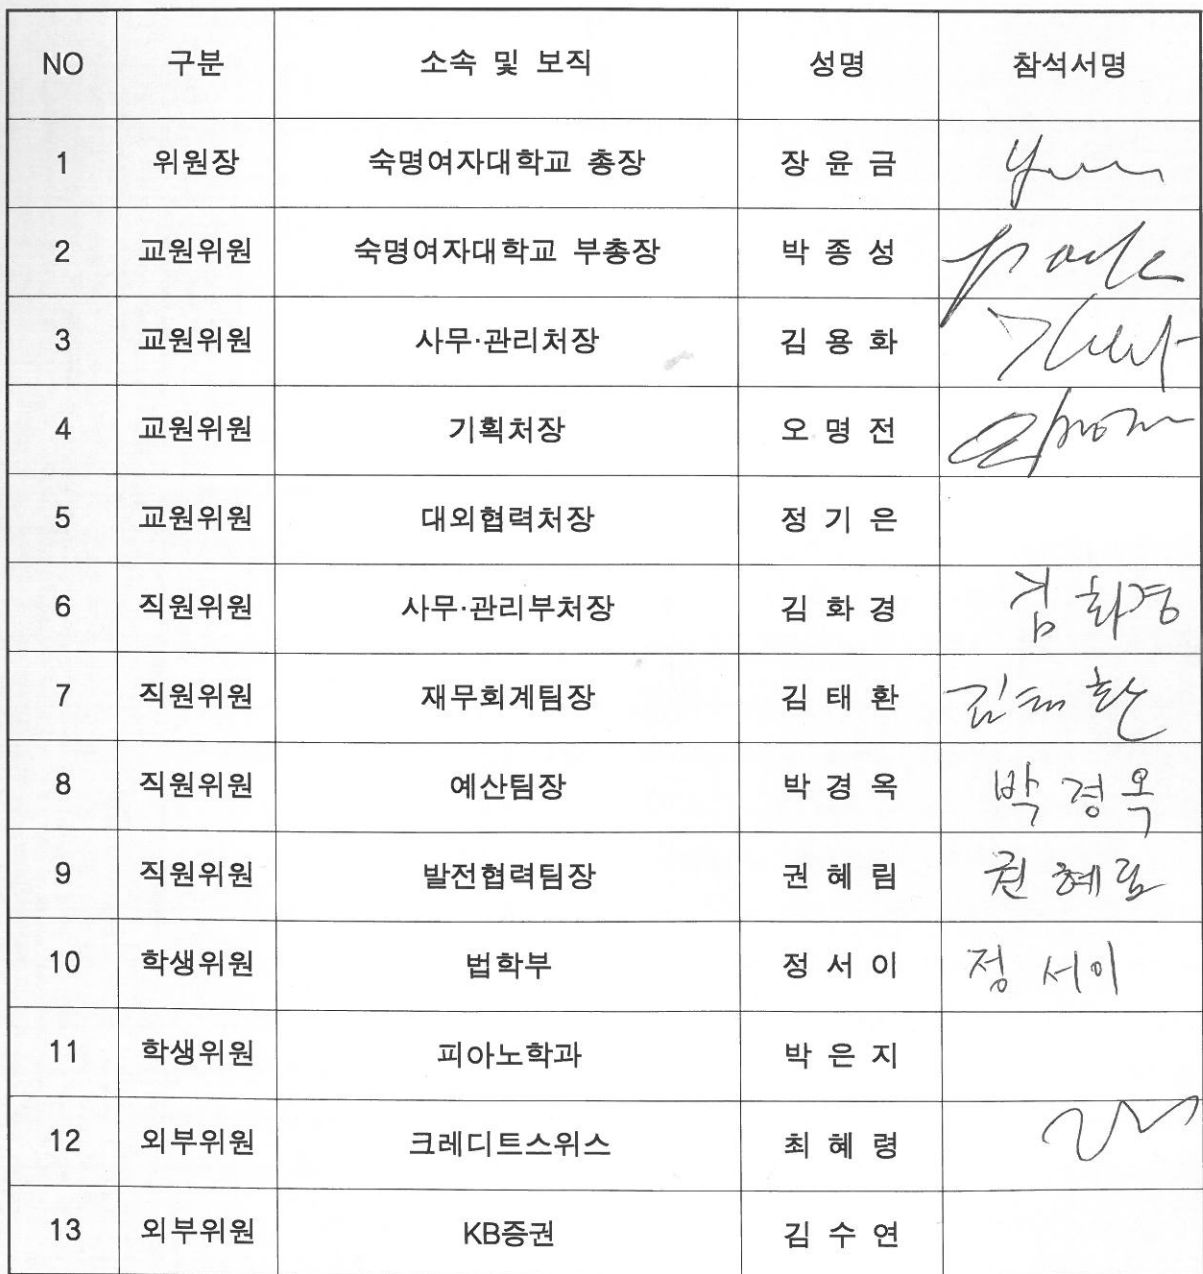 NO 구분 소속 및 보직 성명 참석서명
1 위원장 숙명여자대학교 총장 장 윤 금
2 교원위원 숙명여자대학교 부총장 박 종 성 park
3 교원위원 사무·관리처장 김 용 화
4 교원위원 기획처장 오 명 전
5 교원위원 대외협력처장 정 기 은
6 직원위원 사무·관리부처장 김 화 경 김 화경
7 직원위원 재무회계팀장 김 태 환 김태환
8 직원위원 예산팀장 박 경 옥 박 경 옥
9 직원위원 발전협력팀장 권 혜 림 권 혜림
10 학생위원 법학부 정 서 이 정 서이
11 학생위원 피아노학과 박 은 지
12 외부위원 크레디트스위스 최 혜 령
13 외부위원 KB증권 김 수 연